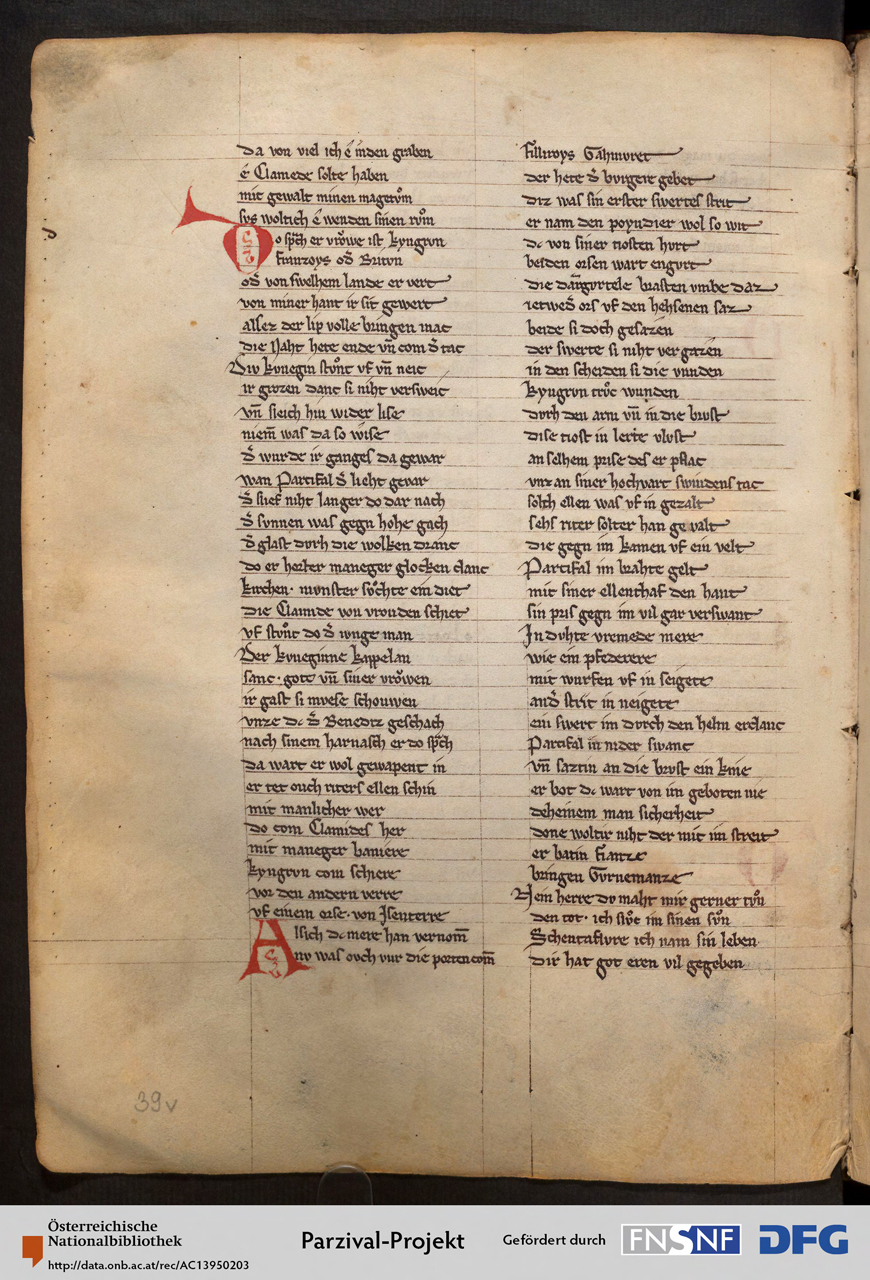 da von viel ich é inden graben
é Clamede solte haben
mit gewalt minen magetvͦm
svs woltich é wenden sinen rvͦm
Do spͣch er vrowe ist kyngrvn
franzoys od̓ Briton
od̓ von swelhem lande er vert
von miner hant ir sit gewert
allez der lip volle bringen mac
die naht hete ende vn̄ com d̓ tac
Div kvnegin stvͦnt vf vn̄ neic
ir grozen danc si niht versweic
vn̄ sleich hin wider lise
niem̄ was da so wise
d̓ wurde ir ganges da gewar
wan Partifal d̓ lieht gevar
d̓ slief niht langer do dar nach
d̓ svnnen was gegn hohe gach
d̓ glast dvrh die wolken dranc
do er horter maneger glocken clanc
kirchen· mvnster svͦchte ein diet
die Clamide von vrouden schiet
vf stvͦnt do d̓ ivnge man
Der kvneginne kappelan
sanc· gote vn̄ siner vrowen
ir gast si mvese schouwen
vnze dc d̓ Benediz geschach
nach sinem harnasch er do spͣch
da wart er wol gewapent in
er tet ouch riters ellen schin
mit manlicher wer
do com Clamides her
mit maneger baniere
kyngrvn com schiere
vor den andern verre
vf einem orse· von Jsenterre
Alsich dc mere han vernom̄
nv was ovch vur die porten com̄
fillivroys Gahmvret
der hete d̓ bvrgere gebet
diz was sin erster swertes strit
er nam den poyndier wol so wit
dc von siner tiosten hvrt
beiden orsen wart engvrt
die darmgvrtele brasten vmbe daz
ietwed̓ ors vf den hehsenen saz
beide si doch gesazen
der swerte si niht vergazen
in den scheiden si die vunden
kyngrvn trvͦc wunden
dvrh den arm vn̄ in die brvst
dise tiost in lerte vlvst
an selhem prise des er pflac
vnz an siner hochvart swindens tac
solch ellen was vf in gezalt
sehs riter solter han gevalt
die gegn im kamen vf ein velt
Partifal im brahte gelt
mit siner ellenthaf den hant
sin pris gegn im vil gar verswant
Jn dvhte vremede mere
wie ein pfederere
mit wurfen vf in seigete
and̓ strit in neigete
ein swert im dvrch den helm erclanc
Partifal in nider swanc
vn̄ saztin an die brvst ein knie
er bot dc wart von im geboten nie
deheinem man sicherheit
done woltir niht der mit im streit
er batin fianze
bringen Gvrnemanze
Nein herre dv maht mir gerner tvͦn
den tot· ich slvͦc im sinen svͦn
Schentaflvre ich nam sin leben
dir hat got eren vil gegeben
39v
Österreichische
Nationalbibliothek
http://data.onb.ac.at/rec/AC13950203
Parzival-Projekt
Gefördert durch
FNSNF
DFG